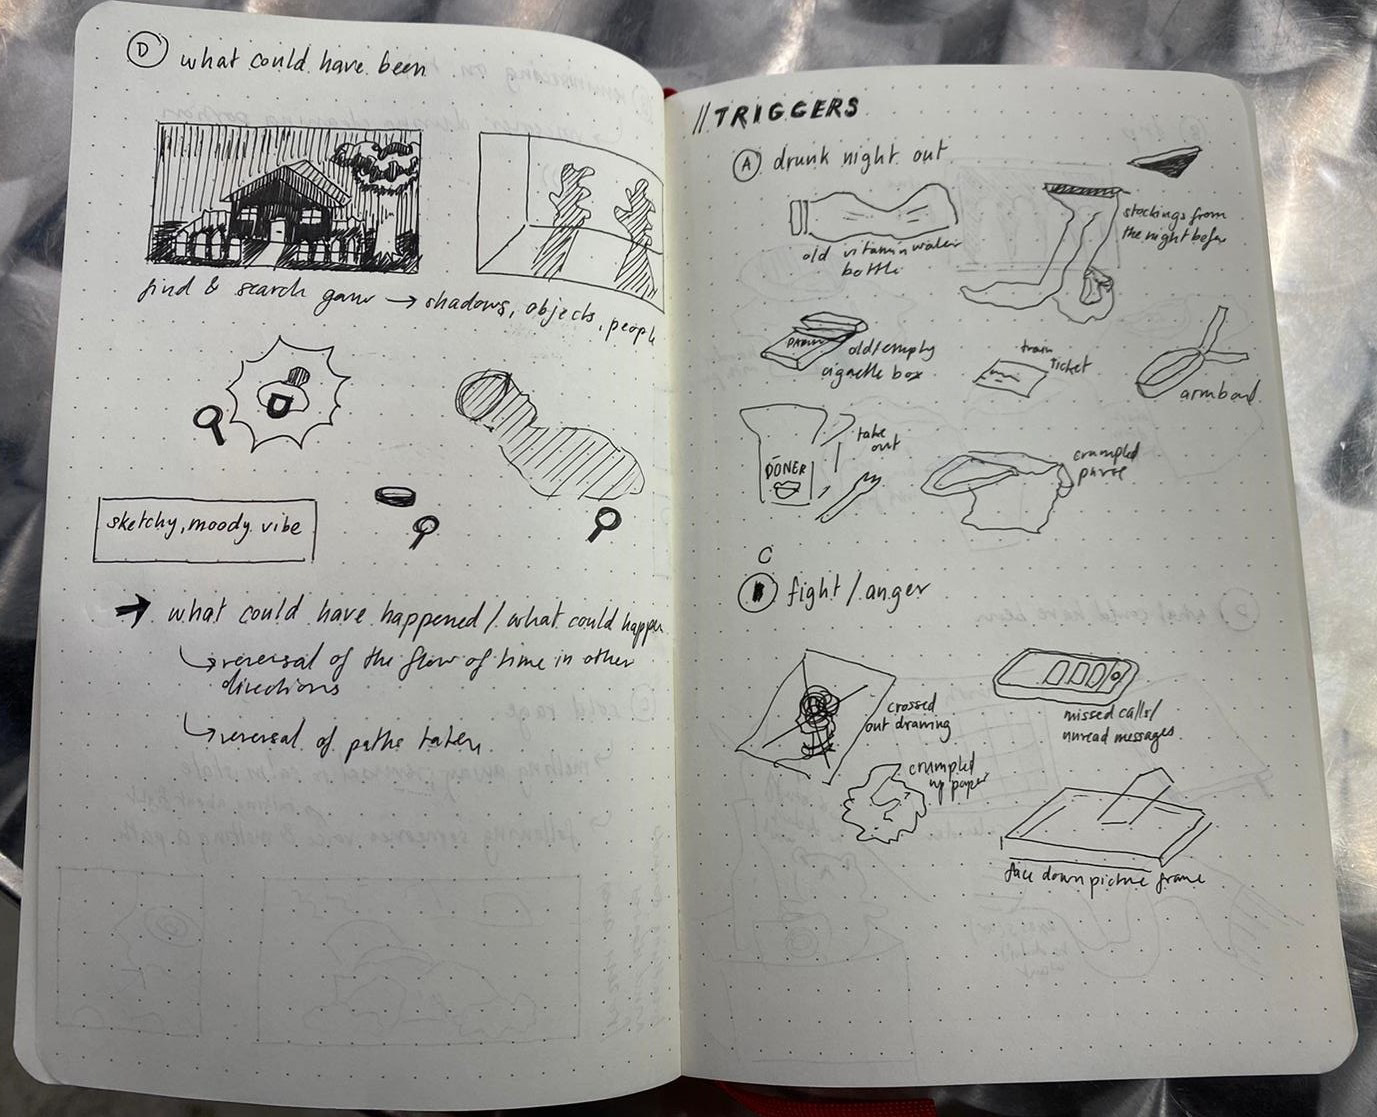 D what could have been
find & search game → shadows, objects, people
sketchy, moody vibe
→ what could have happened / what could happen
↳ reversal of the flow of time in other
directions
↳ reversal of paths taken
// TRIGGERS
A drunk night out
old vitamin water
bottle
stockings from
the night before
old/empty
cigarette box
train
ticket
armband
DÖNER
take
out
crumpled
purse
C
fight / anger
crossed
out drawing
crumpled
up paper
missed calls/
unread messages
face down picture frame